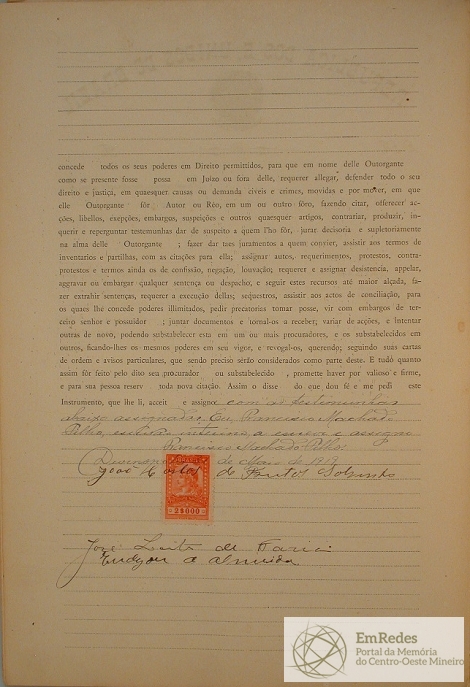 concede todos os seus poderes em Direito permittidos, para que em nome delle Outorgante
como se presente fosse possa em Juizo ou fora delle, requerer allegar, defender todo o seu
direito e justiça, em quaesquer causas ou demanda civeis e crimes, movidas e por mover, em que
elle Outorgante fôr Autor ou Réo, em um ou outro fôro, fazendo citar, offerecer ac-
ções, libellos, exepções, embargos, suspeições e outros quaesquer artigos, contrariar, produzir, in-
querir e reperguntar testemunhas dar de suspeito a quem l'ho fôr, jurar decisoria e supletoriamente
na alma delle Outorgante ; fazer dar taes juramentos a quem convier, assistir aos termos de
inventarios e partilhas, com as citações para ella; assignar autos, requerimentos, protestos, contra-
protestos e termos ainda os de confissão, negação, louvação; requerer e assignar desistencia, appelar,
aggravar ou embargar qualquer sentença ou despacho, e seguir estes recursos até maior alçada, fa-
zer extrahir sentenças, requerer a execução dellas; sequestros, assistir aos actos de conciliação, para
os quaes lhe concede poderes illimitados, pedir precatorias tomar posse, vir com embargos de ter-
ceiro senhor e possuidor ; juntar documentos e tornal-os a receber; variar de acções, e intentar
outras de novo, podendo substabelecer esta em um ou mais procuradores, e os substabelecidos em
outros, ficando-lhes os mesmos poderes em seu vigor, e revogal-os, querendo; seguindo suas cartas
de ordem e avisos particulares, que sendo preciso serão considerados como parte deste. E tudo quanto
assim fôr feito pelo dito seu procurador ou substabelecido , promette haver por valioso e firme,
e para sua pessoa reserv toda nova citação. Assim o disse do que dou fé e me pedi este
Instrumento, que lhe li, acceit e assigna com as testemunhas
abaixo assignadas. Eu, Francisco Machado
Filho, escrivão interino, a escrevi e assigno
Francisco Machado Filho
de Maio de 1919
João de Freitas Sobrinho
2$000
José Leite de Faria
a Almeida
EmRedes
Portal da Memória
do Centro-Oeste Mineiro